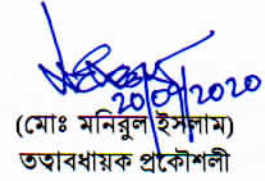 20/09/2020
(মোঃ মনিরুল ইসলাম)
তত্বাবধায়ক প্রকৌশলী